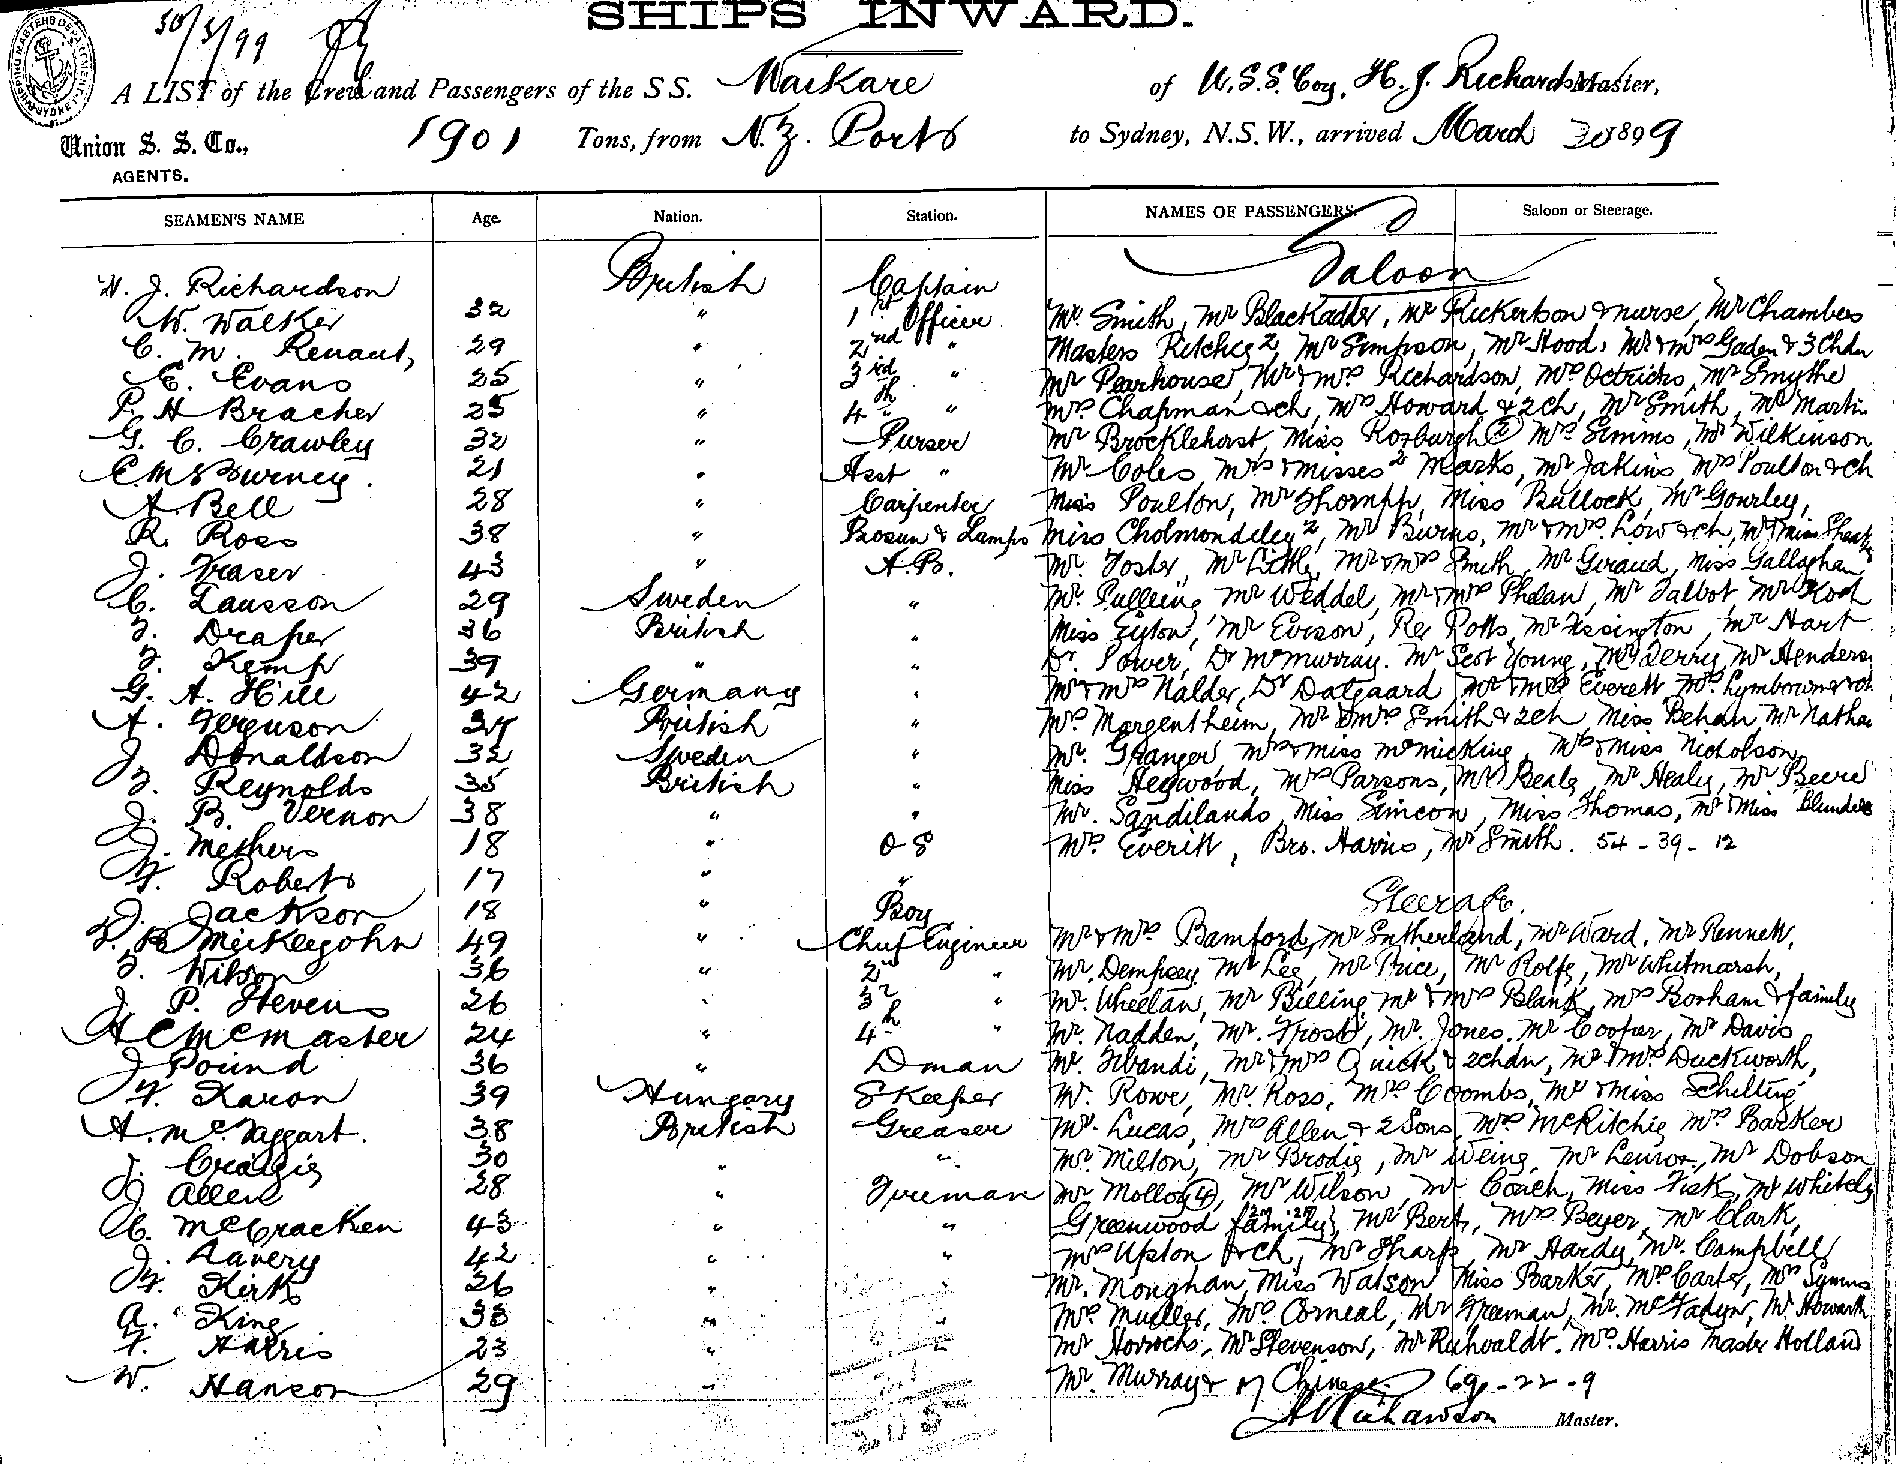 30/3/99
SHIPS INWARD.
A LIST of the Crew and Passengers of the S S. Waikare of U.S.S. Coy, H. J. Richardson Master,
Union S. S. Co., 1901 Tons, from N.Z. Ports to Sydney, N.S.W., arrived March 30 1899
AGENTS.
SEAMEN'S NAME Age. Nation. Station. NAMES OF PASSENGERS. Saloon or Steerage.
Saloon
H. J. Richardson British Captain
W. Walker 32 " 1st Officer Mr Smith, Mr Blackadder, Mr Rickertson & nurse, Mr Chambers
C. M. Renaut, 29 " 2nd " Masters Ritchie 2, Mr Simpson, Mr Hood, Mr & Mrs Gaden & 3 Chdn
E. Evans 25 " 3rd " Mr Pearhouse, Mr & Mrs Richardson, Mrs Oetrichs, Mr Smythe
P. H Bracher 25 " 4th " Mrs Chapman & ch, Mrs Howard & 2 ch, Mr Smith, Mr Martin
G. C. Crawley 32 " Purser Mr Brocklehorst, Miss Roxburgh (2) Mrs Simms, Mr Wilkinson
C McBurney. 21 " Asst " Mr Coles, Mrs & Misses 2 Marks, Mr Jakins, Mrs Poulton & Ch
A. Bell 28 " Carpenter Miss Poulton, Mr Thompp, Miss Bullock, Mr Gourley,
R. Ross 38 " Bosun & Lamps Miss Cholmondeley 2, Mr Burns, Mr & Mrs Low & ch, Mr & Miss
J. Fraser 43 " A.B. Mr Foster, Mr Little, Mr & Mrs Smith, Mr Giraud, Miss Gallaghan
C. Lausson 29 Sweden " Mr Pulleine, Mr Weddel, Mr & Mrs Phelan, Mr Talbot, Mr Koch
F. Draper 36 British " Miss Eyton, Mr Evison, Rev Potts, Mr Fissington, Mr Hart
F. Kemp 39 " " Dr. Power, Dr McMurray. Mr Scot Young, Mr Derry, Mr Henders
G. A. Hill 42 Germany " Mr & Mrs Nalder, Dr Dalgaard Mr & Mrs Everett Mrs Lymbourne & ch
A. Ferguson 37 British " Mrs Morgentheim, Mr & Mrs Smith & 2 ch Miss Behan, Mr Nathan
J. Donaldson 32 Sweden " Mr. Granger, Mrs & Miss McMicking, Mrs & Miss Nicholson,
F. Reynolds 35 British " Miss Heywood, Mrs Parsons, Mr Beale, Mr Healy, Mr Beere
J. B. Vernon 38 " " Mr. Sandilands, Miss Simeon, Miss Thomas, Mr & Miss Blundell
J. Methers 18 " O S Mrs Everitt, Bro. Harris, Mr Smith. 54 - 39 - 12
F. Roberts 17 " "
Steerage.
J. Jackson 18 " Boy
D. B. Meiklejohn 49 " Chief Engineer Mr & Mrs Bamford, Mr Sutherland, Mr Ward, Mr Rennett,
F. Wilson 36 " 2nd " Mr. Dempsey, Mr Lee, Mr Price, Mr Rolfe, Mr Whitmarsh,
J. P. Stevens 26 " 3rd " Mr. Wheelan, Mr Billing, Mr & Mrs Blank, Mrs Borham & family
H C McMaster 24 " 4th " Mr. Nadden, Mr. Frost, Mr. Jones, Mr Cooper, Mr Davis
J Pound 36 " D man Mr. Fibandi, Mr & Mrs Quick & 2 chdn, Mr & Mrs Duckworth,
F. Karon 39 Hungary S Keeper Mr. Rowe, Mr. Ross, Mrs Coombs, Mr & Miss Schilling
A. McTaggart. 38 British Greaser Mr. Lucas, Mrs Allen & 2 Sons, Mrs McRitchie, Mrs Barker
J. Craigie 30 " " Mr. Milton, Mr Brodie, Mr Weing, Mr Lenrox, Mr Dobson
J. Allen 28 " Fireman Mr Molloy (4), Mr Wilson, Mr Coach, Miss Fisk, Mr Whitely
C. McCracken 43 " " Greenwood family, Mr Bert, Mrs Beyer, Mr Clark,
J. Lavery 42 " " Mrs Upston & Ch, Mr Sharp, Mr Hardy, Mr. Campbell
F. Kirk 26 " " Mr. Monghan, Miss Watson Miss Barker, Mrs Carter, Mrs Symms
A. King 33 " " Mrs Mueller, Mrs Corneal, Mr Freeman, Mr. McFadyn, Mr Howarth
F. Harris 23 " " Mr Horrocks, Mr Stevenson, Mr Richvaldt. Mrs Harris Master Holland
W. Hanson 29 " Mr. Murray & 17 Chinese 69 - 22 - 9
H Richardson Master.
208